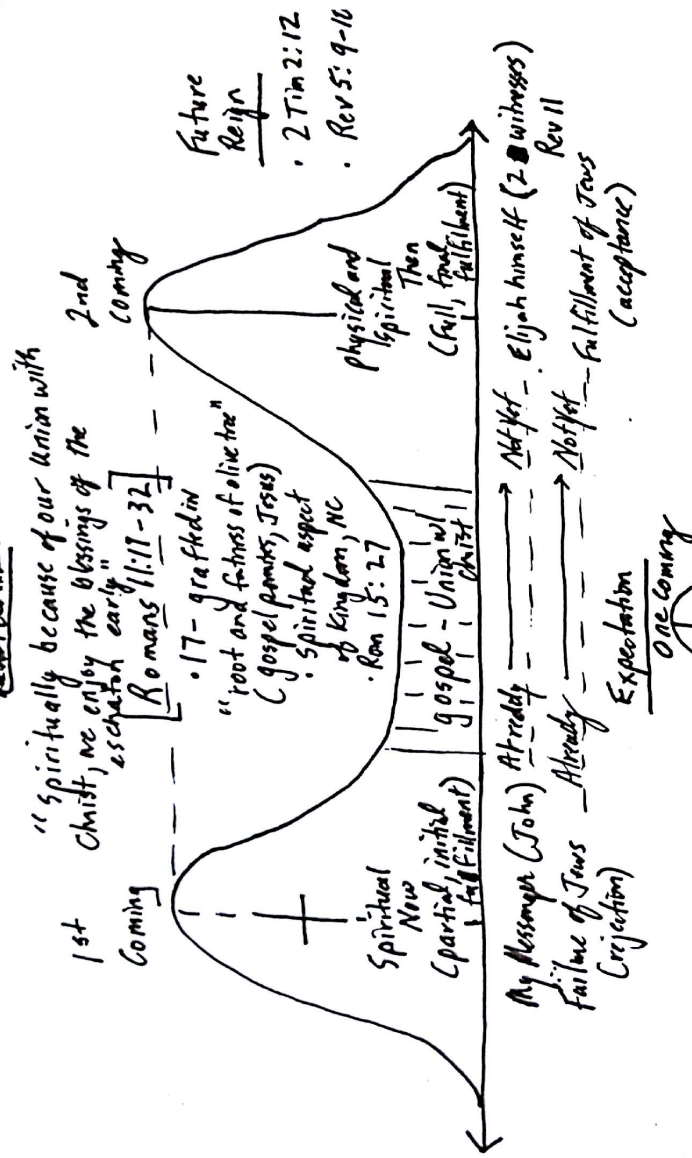 "Spiritually because of our union with
Christ, we enjoy the blessings of the
eschaton early"
[Romans 11:17-32]
1st
Coming
2nd
Coming
Future
Reign
· 2 Tim 2:12
· Rev 5:9-10
· 17 - grafted in
"root and fatness of olive tree"
(gospel promises, Jesus)
· Spiritual aspect
of Kingdom, NC
· Rom 15:27
Spiritual
Now
(partial, initial
fulfillment)
gospel - Union w/
Christ
Physical and
Spiritual
Then
(Full, final
fulfillment)
My Messenger (John) Already → Not Yet - Elijah himself (2 witnesses)
Rev 11
Failure of Jews Already → Not Yet - Fulfillment of Jews
(rejection)
(acceptance)
Expectation
one coming